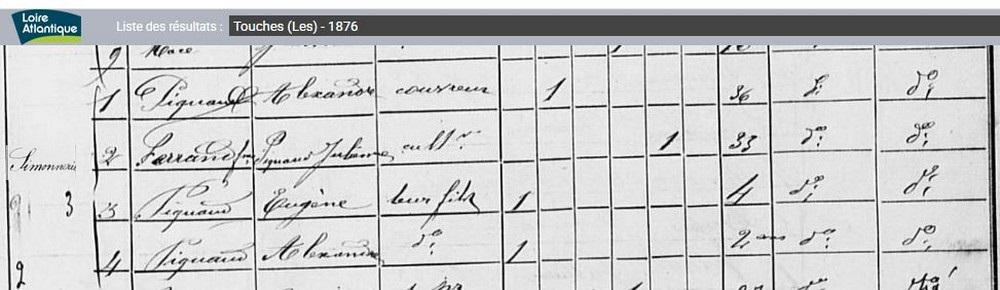 Loire
Atlantique
Liste des résultats : Touches (Les) - 1876
9 Macé
1 Piquaud Alexandre couvreur 1 36 d° d°
Simonnerie 2 Ferrand fme Piquaud Julienne cultr 1 33 d° d°
3 3 Piquaud Eugène leur fils 1 4 d° d°
4 Piquaud Alexandre d° 1 2 ans d° d°
2